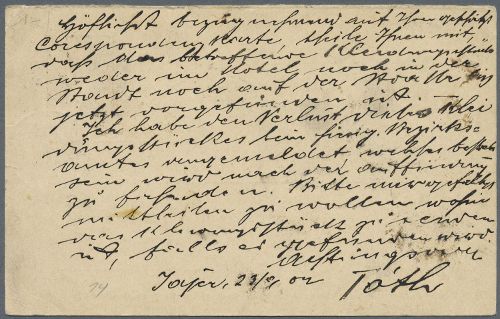 Höflichst bezugnehmend auf Ihre geschätzte
Correspondenzkarte, theile Ihnen mit,
daß das betreffende Kleidungsstück
weder im Hotel noch in der
Stadt noch auf der
jetzt vorgefunden ist.
Ich habe den Verlust dieses Klei
dungsstückes beim hiesig. Bezirks
amtes angemeldet welches
sein wird nach der auffindung
zu Bitte mir gefälligst
mittheilen zu wollen wohin
das Kleidungsstück zu senden
ist, falls es gefunden wird
Achtungsvoll
Jajce, 23/9 02 Tóth